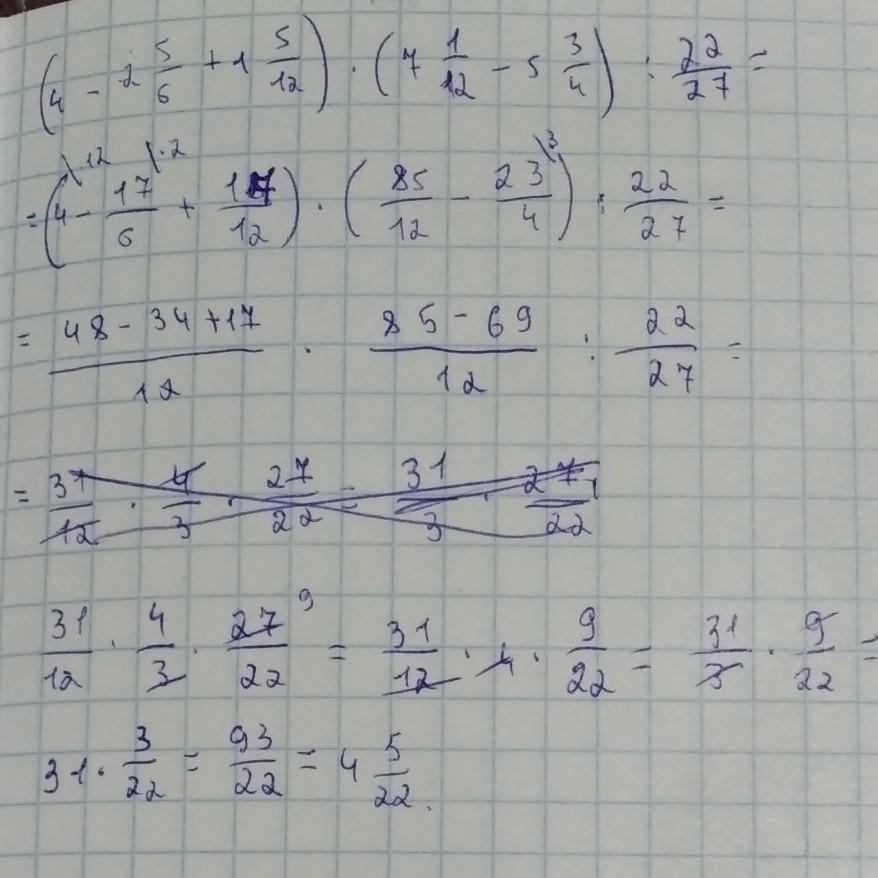 (4 - 2 5/6 + 1 5/12) · (7 1/12 - 5 3/4) : 22/27 =
= (4\12 - 17/6\·2 + 17/12) · (85/12 - 23/4\3) : 22/27 =
= (48 - 34 + 17)/12 · (85 - 69)/12 : 22/27 =
= 31/12 · 4/3 · 27/22 = 31/3 · 27/22
31/12 · 4/3 · 27/22 9 = 31/12 · 4 · 9/22 = 31/3 · 9/22 =
31 · 3/22 = 93/22 = 4 5/22.